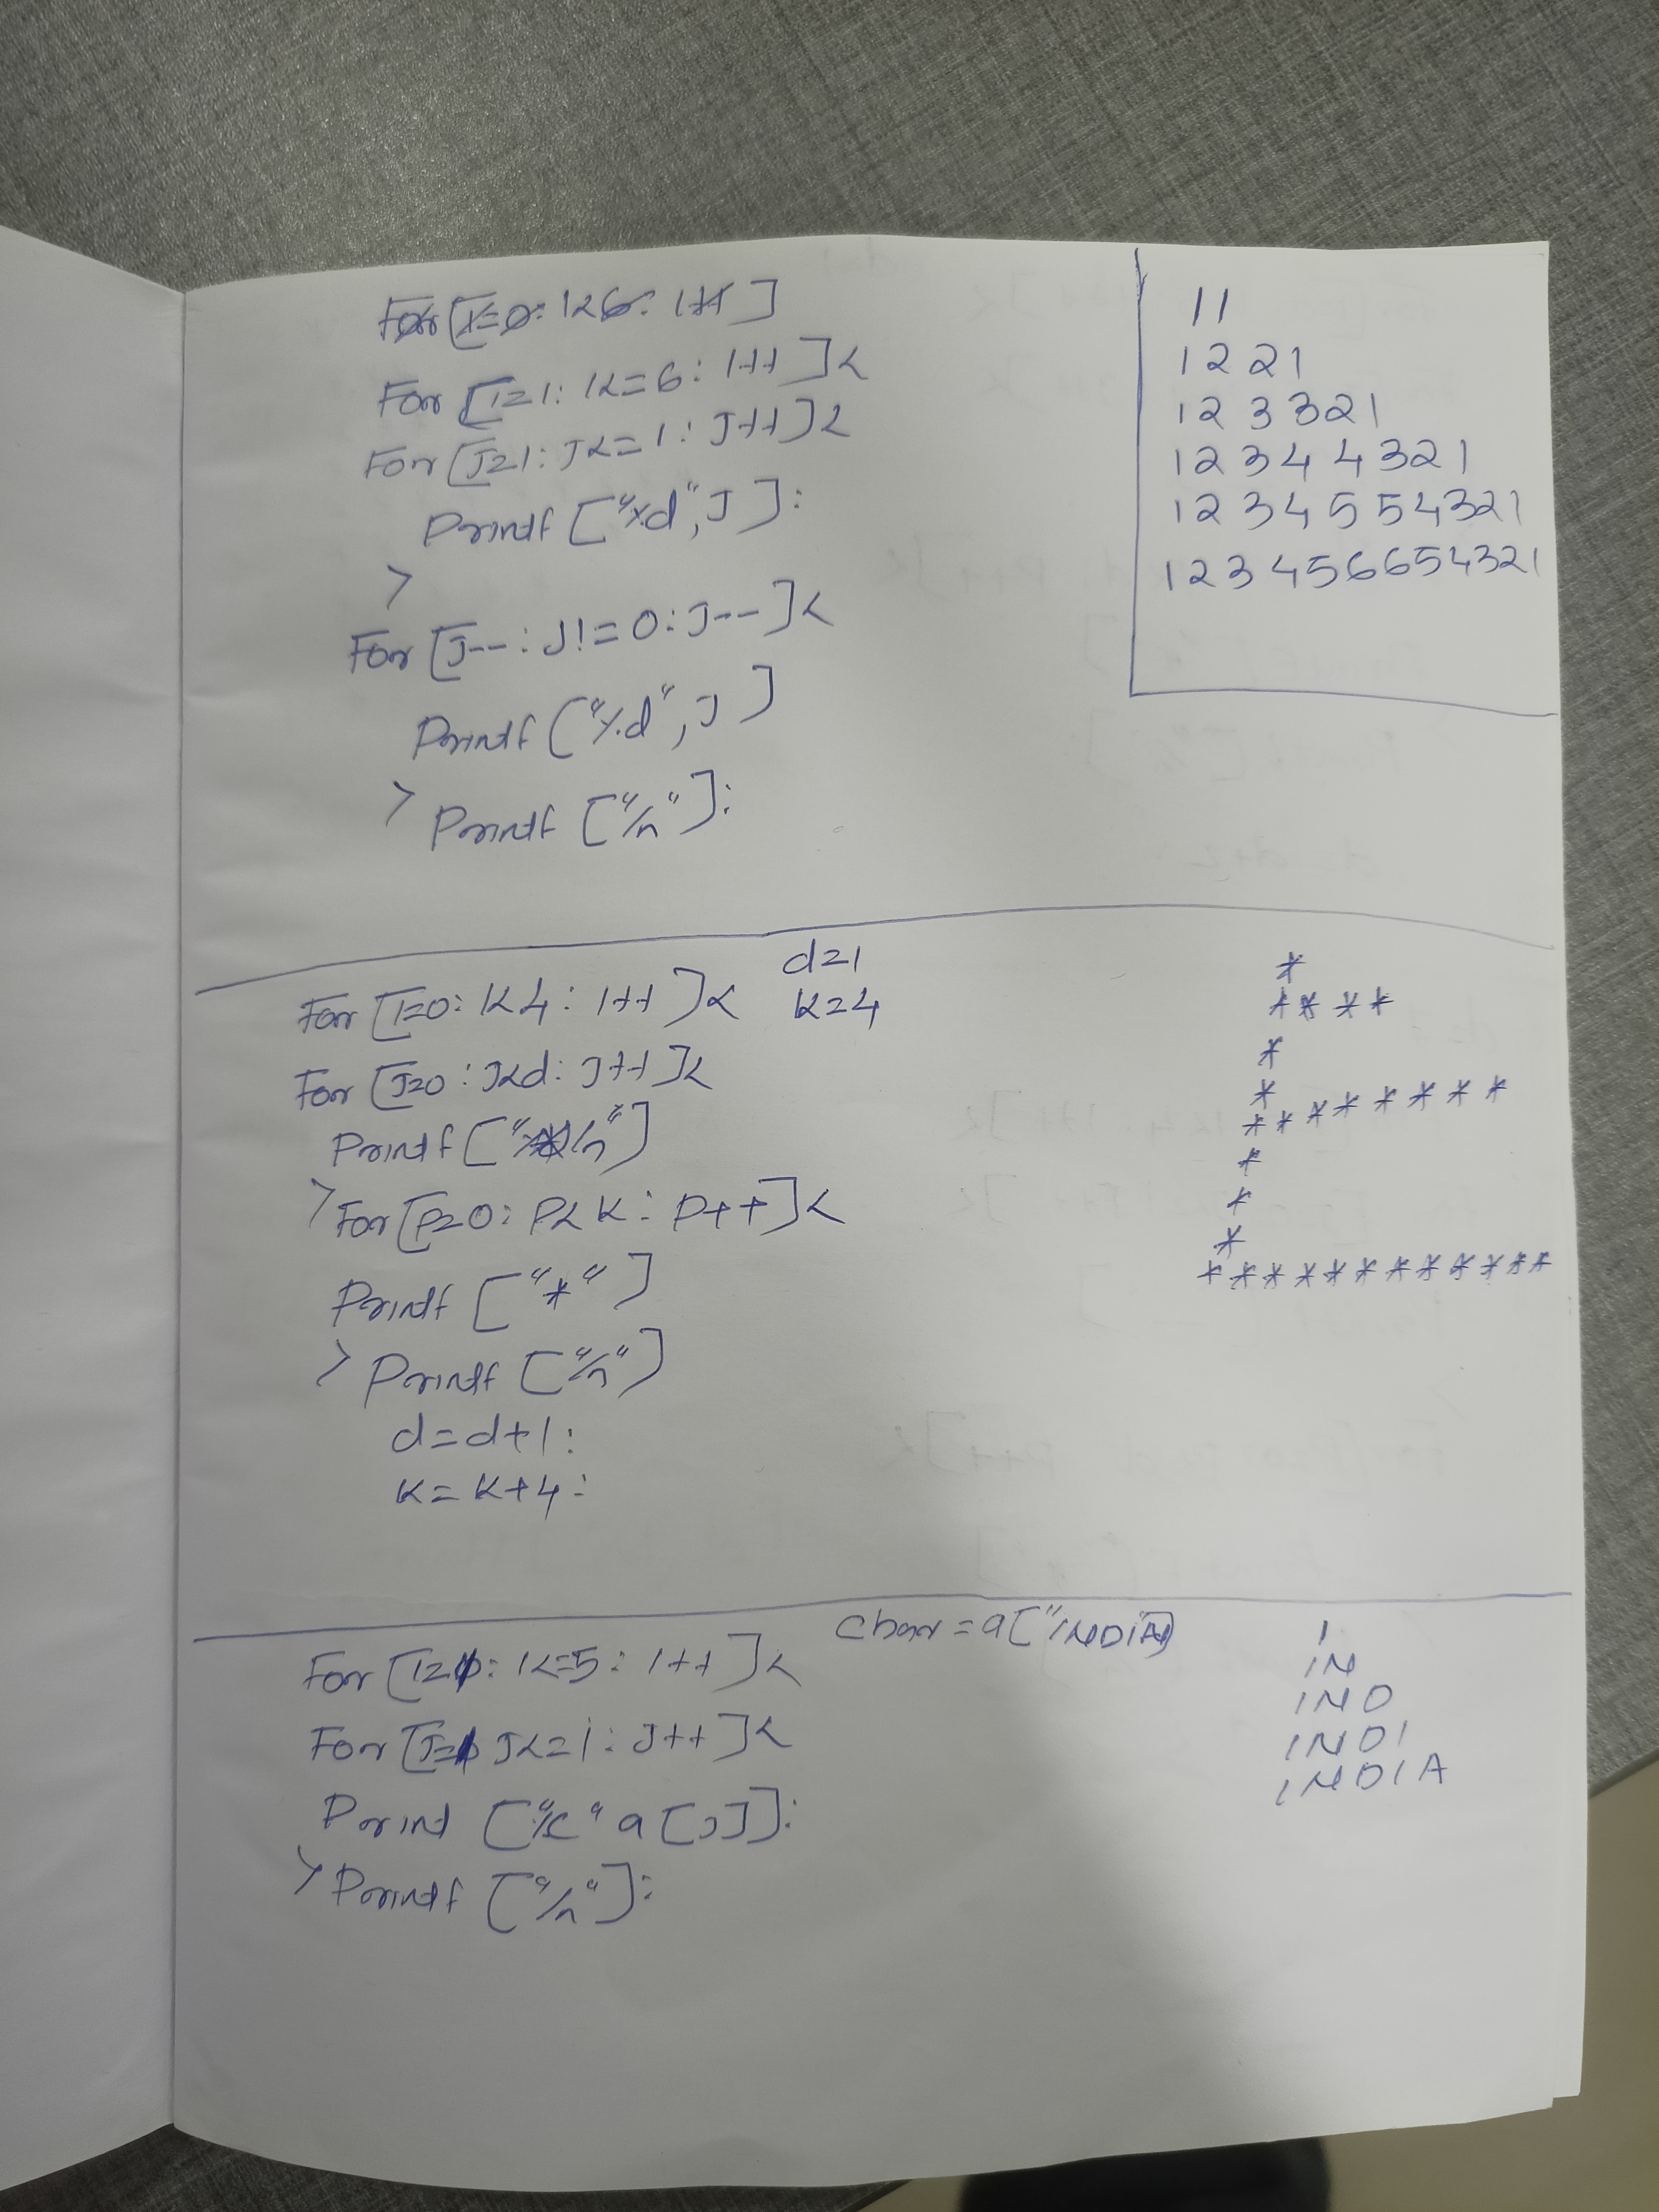 For [I=0: I<6: I++]
For [I=1: I<=6: I++]<
For [J=1: J<=I: J++]<
Printf ["%d", J]:
>
For [J--: J!=0: J--]<
Printf ("%d", J]
> Printf ["/n"]:
11
1 2 2 1
1 2 3 3 2 1
1 2 3 4 4 3 2 1
1 2 3 4 5 5 4 3 2 1
1 2 3 4 5 6 6 5 4 3 2 1
For [I=0: I<4: I++]< d=1
k=4
For [J=0: J<d: J++]<
Printf ["*/n"]
> For [P=0: P<k: P++]<
Printf ["*"]
> Printf ["/n"]
d=d+1:
k=k+4:
*
* * * *
*
*
* * * * * * * *
*
*
*
* * * * * * * * * * * *
For [I=0: I<=5: I++]< Char = a["INDIA]
For [J=0 J<=i: J++]<
Print ["%c" a[J]]:
> Printf ["/n"]:
I
IN
IND
INDI
INDIA